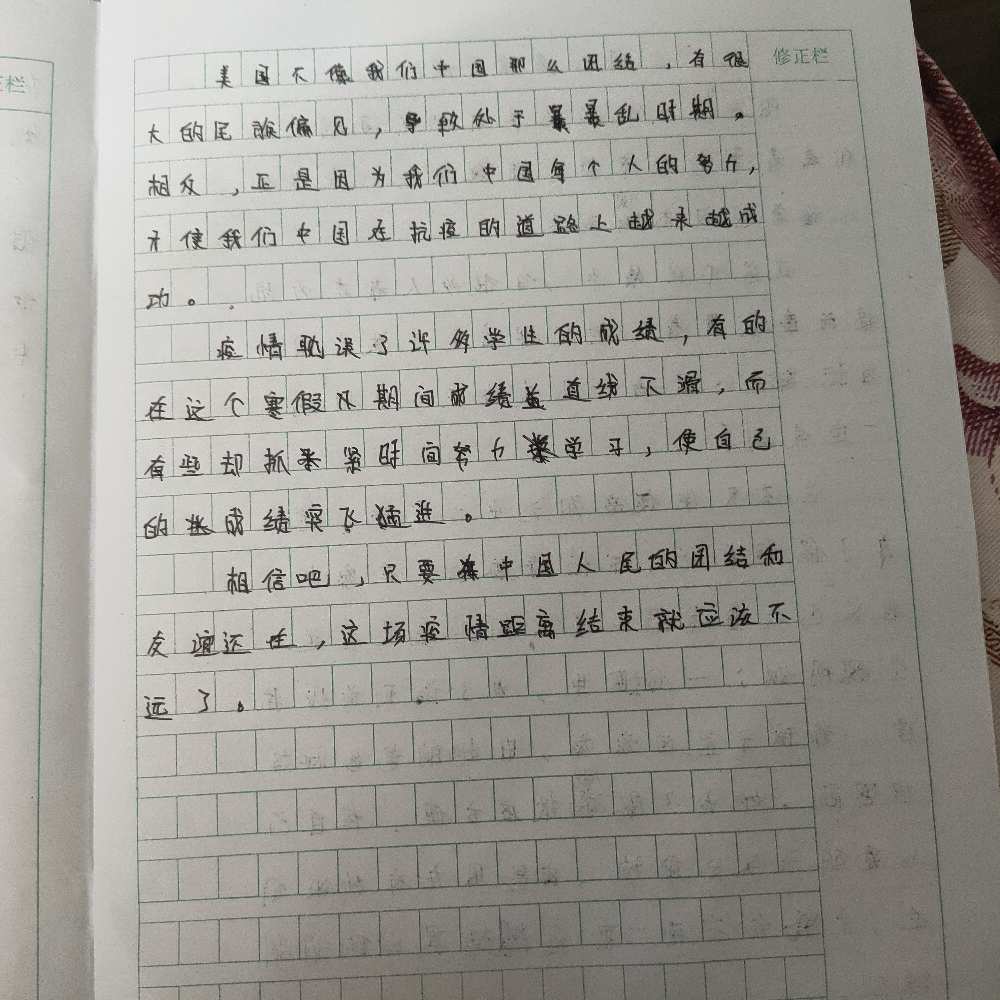 正栏
修正栏
美国不像我们中国那么团结，有很
大的民族偏见，导致处于最最乱时期。
相反，正是因为我们中国每个人的努力，
才使我们中国在抗疫的道路上越来越成
功。
疫情耽误了许多学生的成绩，有的
在这个寒假不期间成绩盖直线下滑，而
有些却抓来紧时间努力学习，使自己
的成绩突飞猛进。
相信吧，只要中国人民的团结和
友谊还在，这场疫情距离结束就应该不
远了。